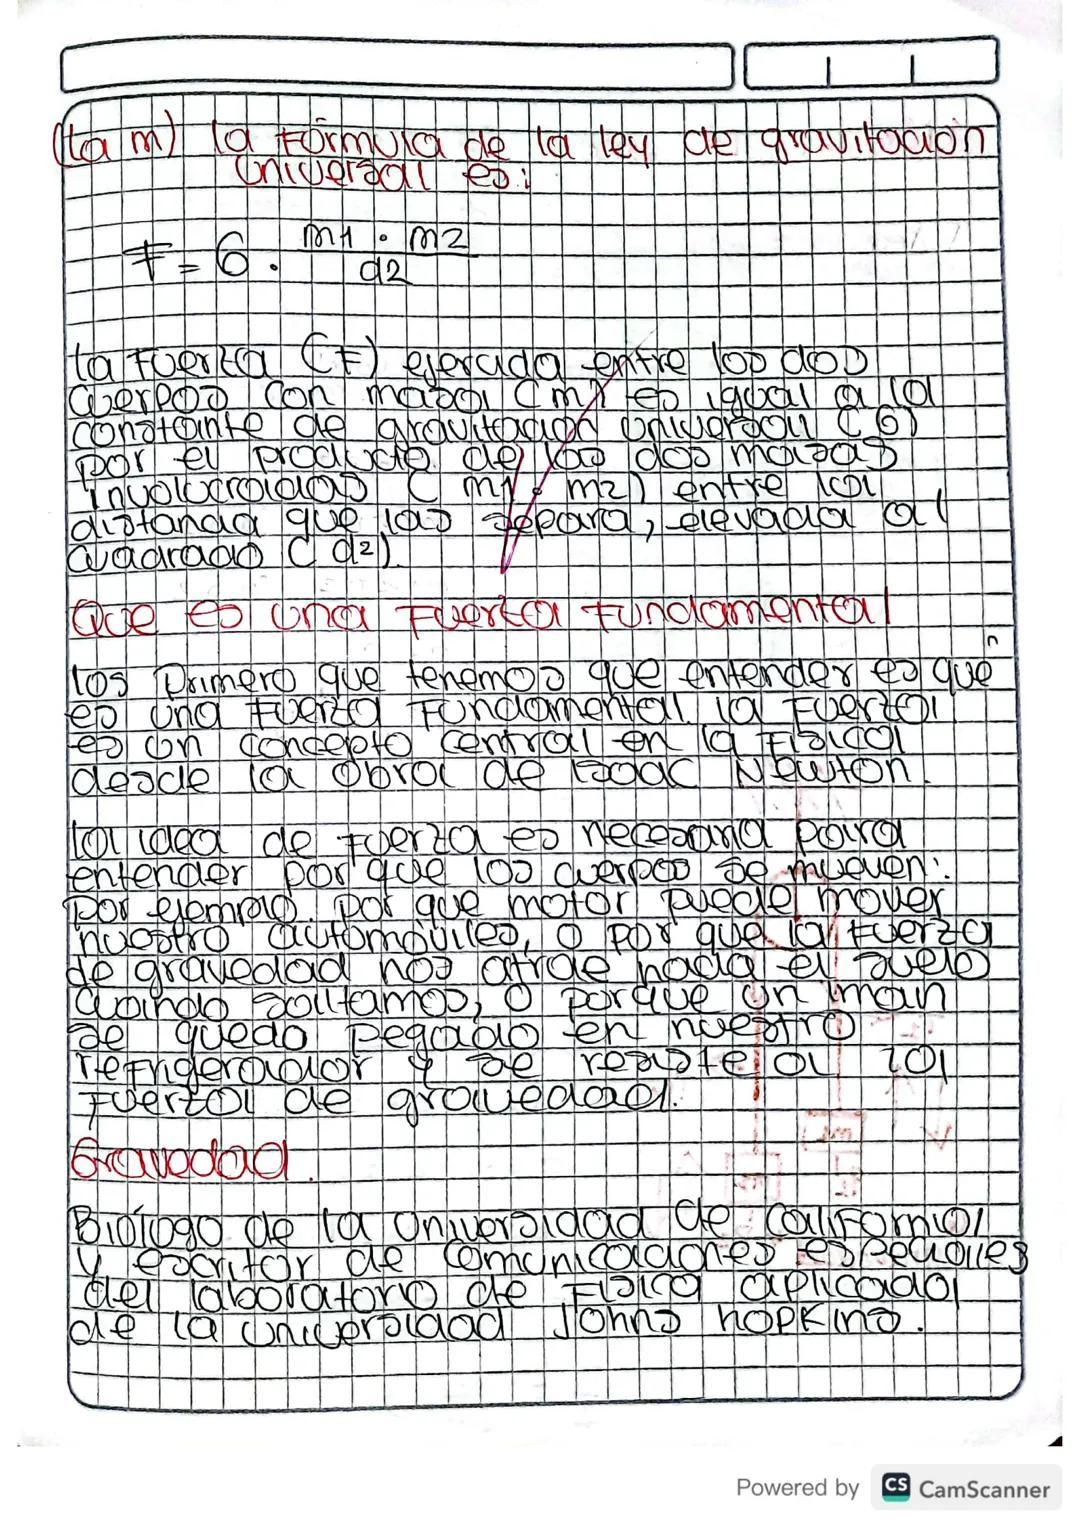 (ta m) la Fórmula de la ley de gravitación
universal es:
F = G . m1 . m2
d2
La Fuerza (F) ejercida entre los dos
cuerpos con masa (m) es igual a la
constante de gravitación universal (G)
por el producto de las dos masas
involucradas (m1 . m2) entre la
distancia que las separa, elevada al
cuadrado (d2).
Que es una Fuerza Fundamental
los primero que tenemos que entender es que
es una Fuerza Fundamental. la Fuerza
es un concepto central en la Fisica
desde la obra de Isaac Newton.
La idea de Fuerza es necesaria para
entender por que los cuerpos se mueven:
por ejemplo. por que motor puede mover
nuestro automoviles, o por que la Fuerza
de gravedad nos atrae hacia el suelo
cuando saltamos, o porque un iman
se queda pegado en nuestro
refrigerador y se resiste a la
Fuerza de gravedad.
Gravedad.
Biólogo de la universidad de California
y escritor de comunicaciones especiales
del laboratorio de Fisica aplicada
de la universidad Johns hopkins.
Powered by CS CamScanner